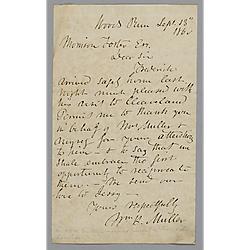 Woods Run Sept. 13th
186
Morrison Foster Esq.
Dear Sir
Frederick
arrived safely home last
night much pleased with
his visit to Cleaveland
Permit me to thank you
in behalf of Mrs. Muller &
myself for your attention
to him - & to say that we
shall embrace the first
opportunity to reciprocate
them. - We send our
love to Jessy -
Yours respectfully
Wm. P. Muller